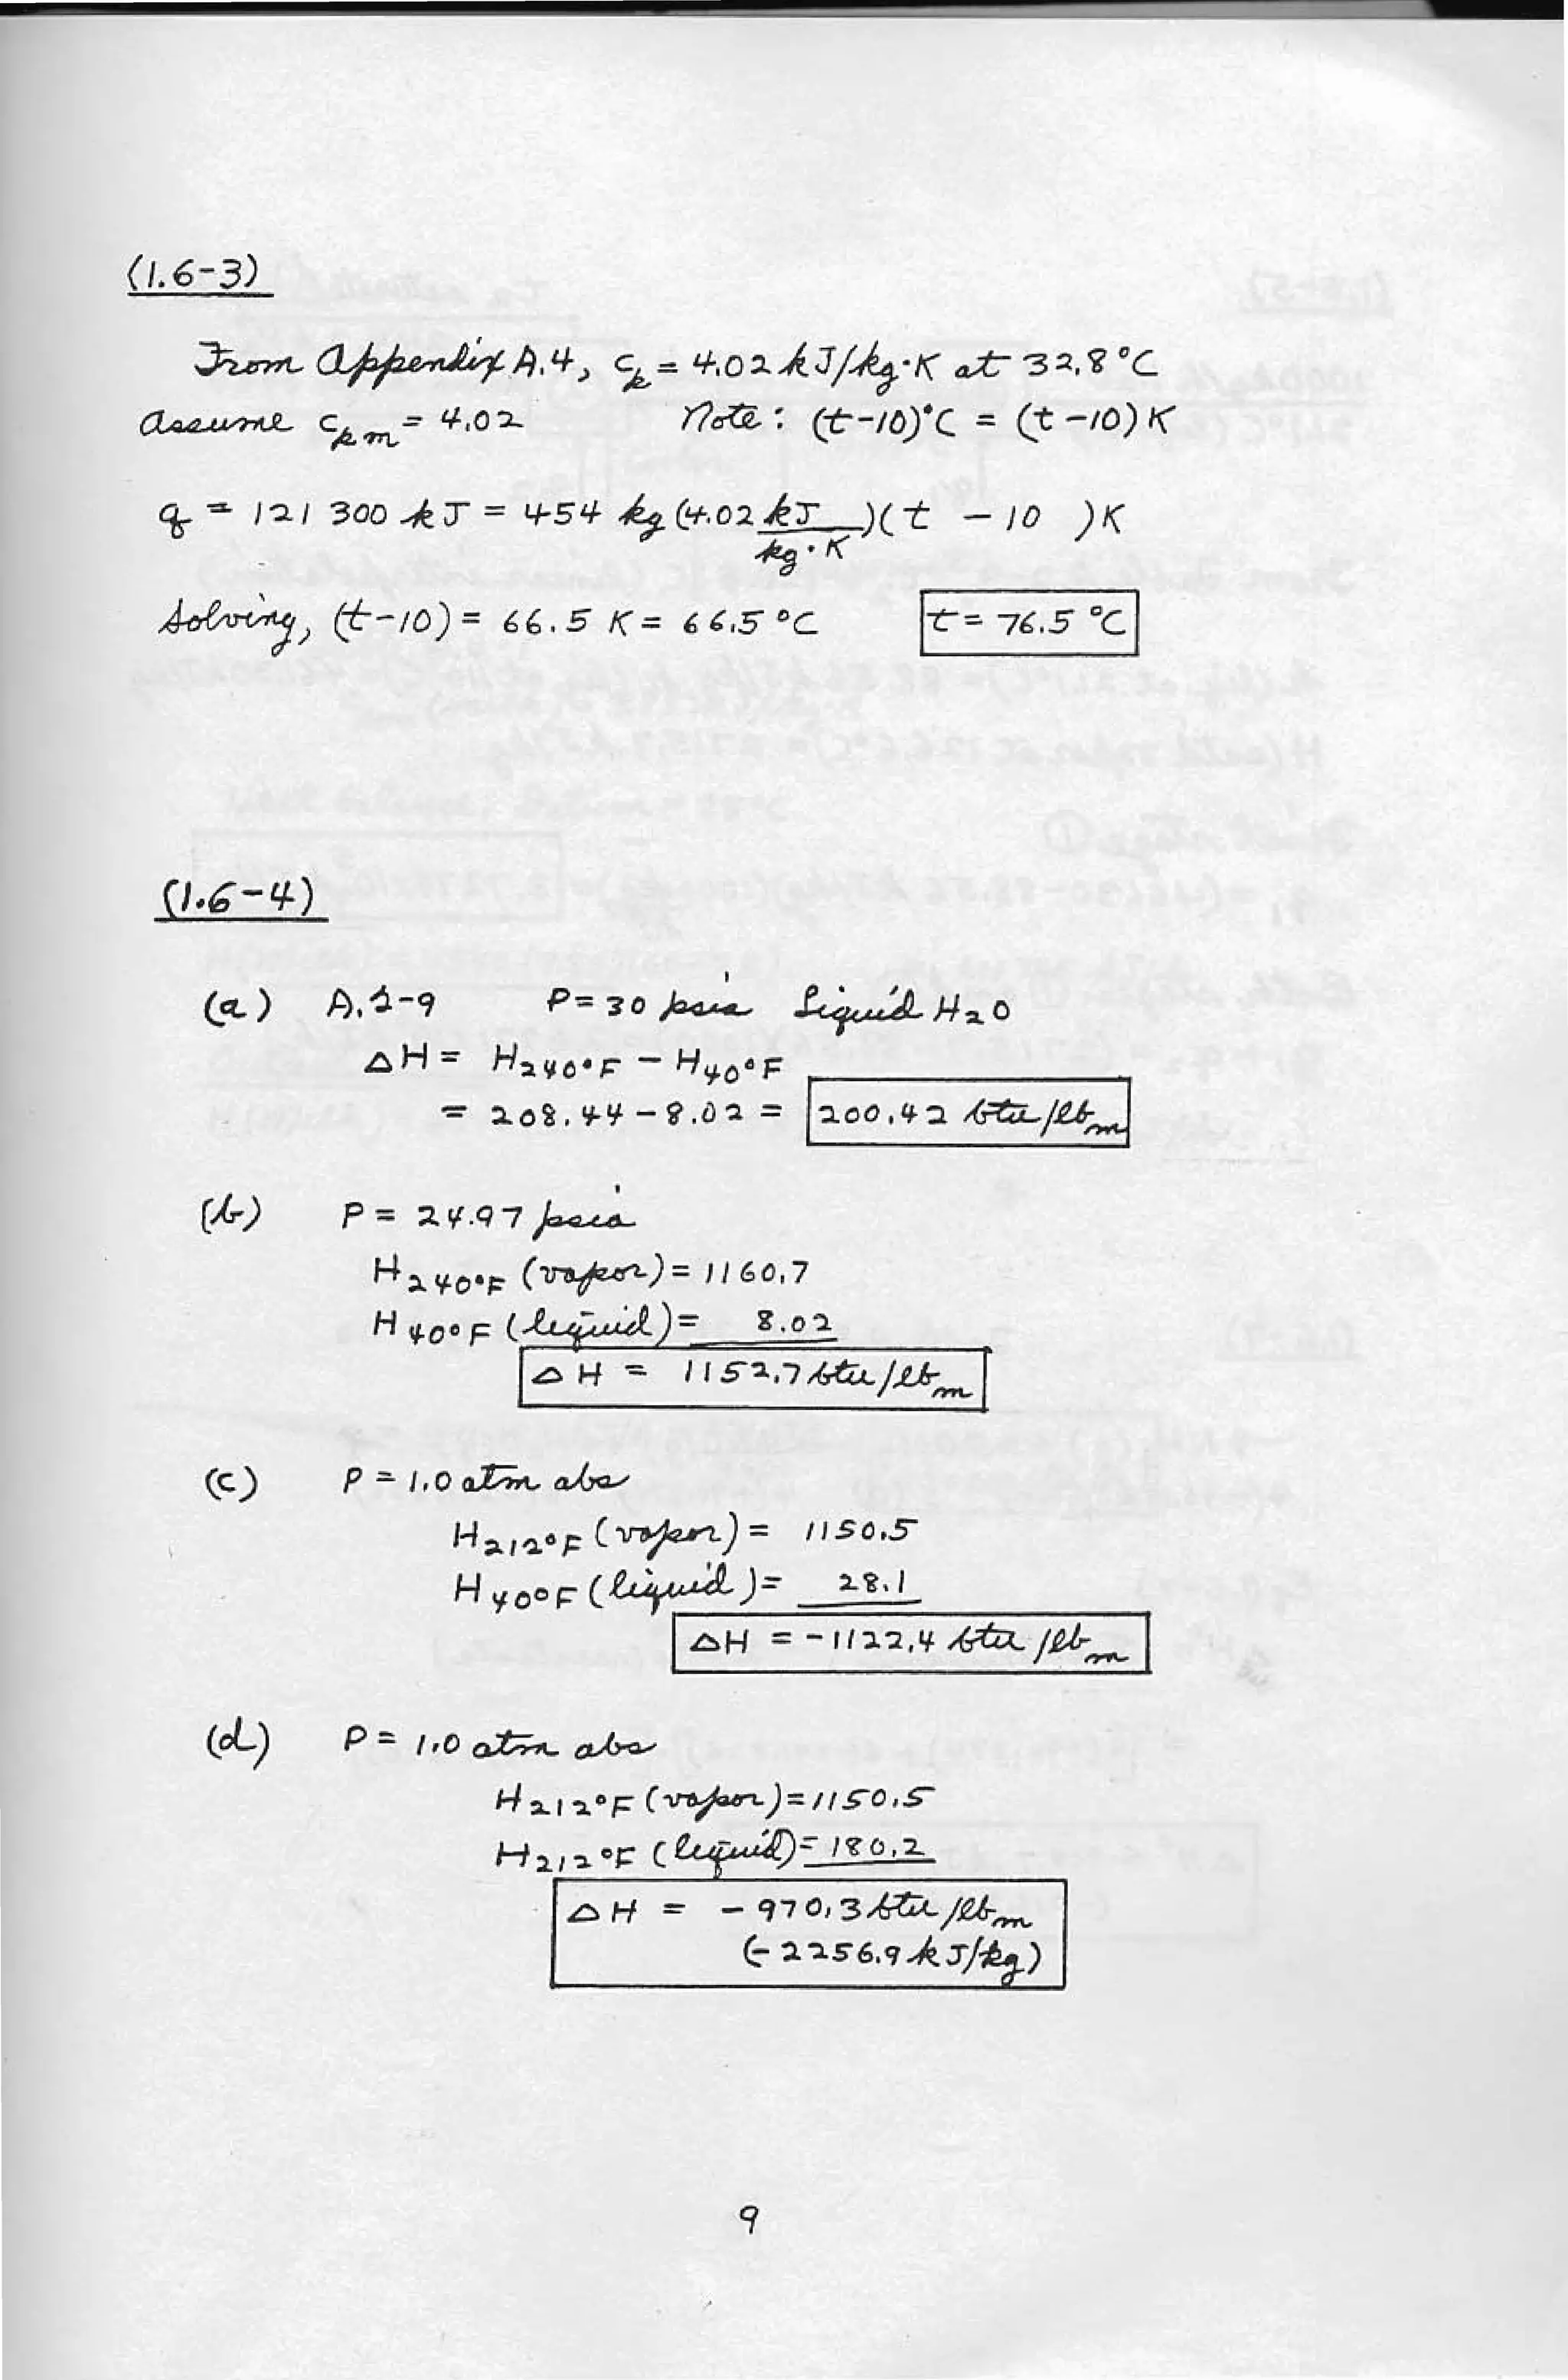 (1.6-3)
From Appendix A.4, cp = 4.02 kJ/kg·K at 32.8 °C
Assume cpm = 4.02 Note: (t-10)°C = (t-10)K
q = 121 300 kJ = 454 kg (4.02 kJ/kg·K)(t - 10 )K
Solving, (t-10) = 66.5 K = 66.5 °C t = 76.5 °C
(1.6-4)
(a) A.2-9 P = 30 psia Liquid H2O
ΔH = H240°F - H40°F
= 208.44 - 8.02 = 200.42 btu/lbm
(b) P = 24.97 psia
H240°F (vapor) = 1160.7
H40°F (liquid) = 8.02
ΔH = 1152.7 btu/lbm
(c) P = 1.0 atm abs
H212°F (vapor) = 1150.5
H40°F (liquid) = 28.1
ΔH = -1122.4 btu/lbm
(d) P = 1.0 atm abs
H212°F (vapor) = 1150.5
H212°F (liquid) = 180.2
ΔH = - 970.3 btu/lbm
(-2256.9 kJ/kg)
9